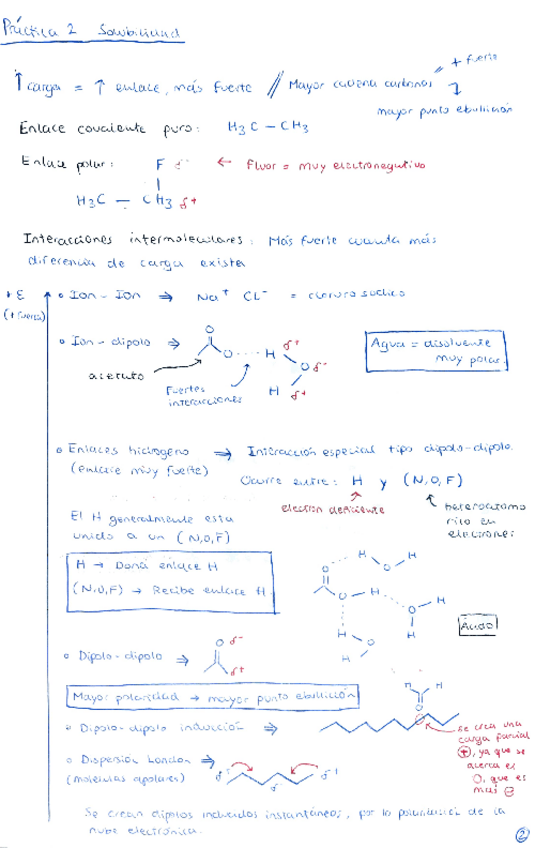 Práctica 2 Solubilidad
+ fuerte
↑ carga = ↑ enlace, más fuerte // Mayor cadena carbonos
mayor punto ebullición
Enlace covalente puro: H3C - CH3
Enlace polar: F δ- ← Fluor = muy electronegativo
H3C - CH3 δ+
Interacciones intermoleculares: Más fuerte cuanta más
diferencia de carga exista
+ E
(+ fuerza)
Ion - Ion ⇒ Na+ Cl- = cloruro sódico
Ion - dipolo ⇒
O
O H δ+
O δ-
H δ+
acetato
Fuertes
interacciones
Agua = disolvente
muy polar.
Enlaces hidrógeno ⇒ Interacción especial tipo dipolo-dipolo.
(enlace muy fuerte)
Ocurre entre: H y (N,O,F)
electron deficiente
heteroátomo
rico en
electrones
El H generalmente esta
unido a un (N,O,F)
H → Dona enlace H
(N,O,F) → Recibe enlace H
H
O H
O
O H
O H
H
H
O
H
Ácido
Dipolo - dipolo ⇒
O δ-
δ+
Mayor polaridad → mayor punto ebullición
Dipolo - dipolo inducción ⇒
H H
O
se crea una
carga parcial
+, ya que se
acerca el
O, que es
más -
Dispersión London ⇒
(moléculas apolares)
δ- δ- δ+
Se crean dipolos inducidos instantáneos, por la polarización de la
nube electrónica.
2